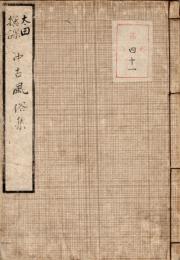 太田
中古風俗集
四十一